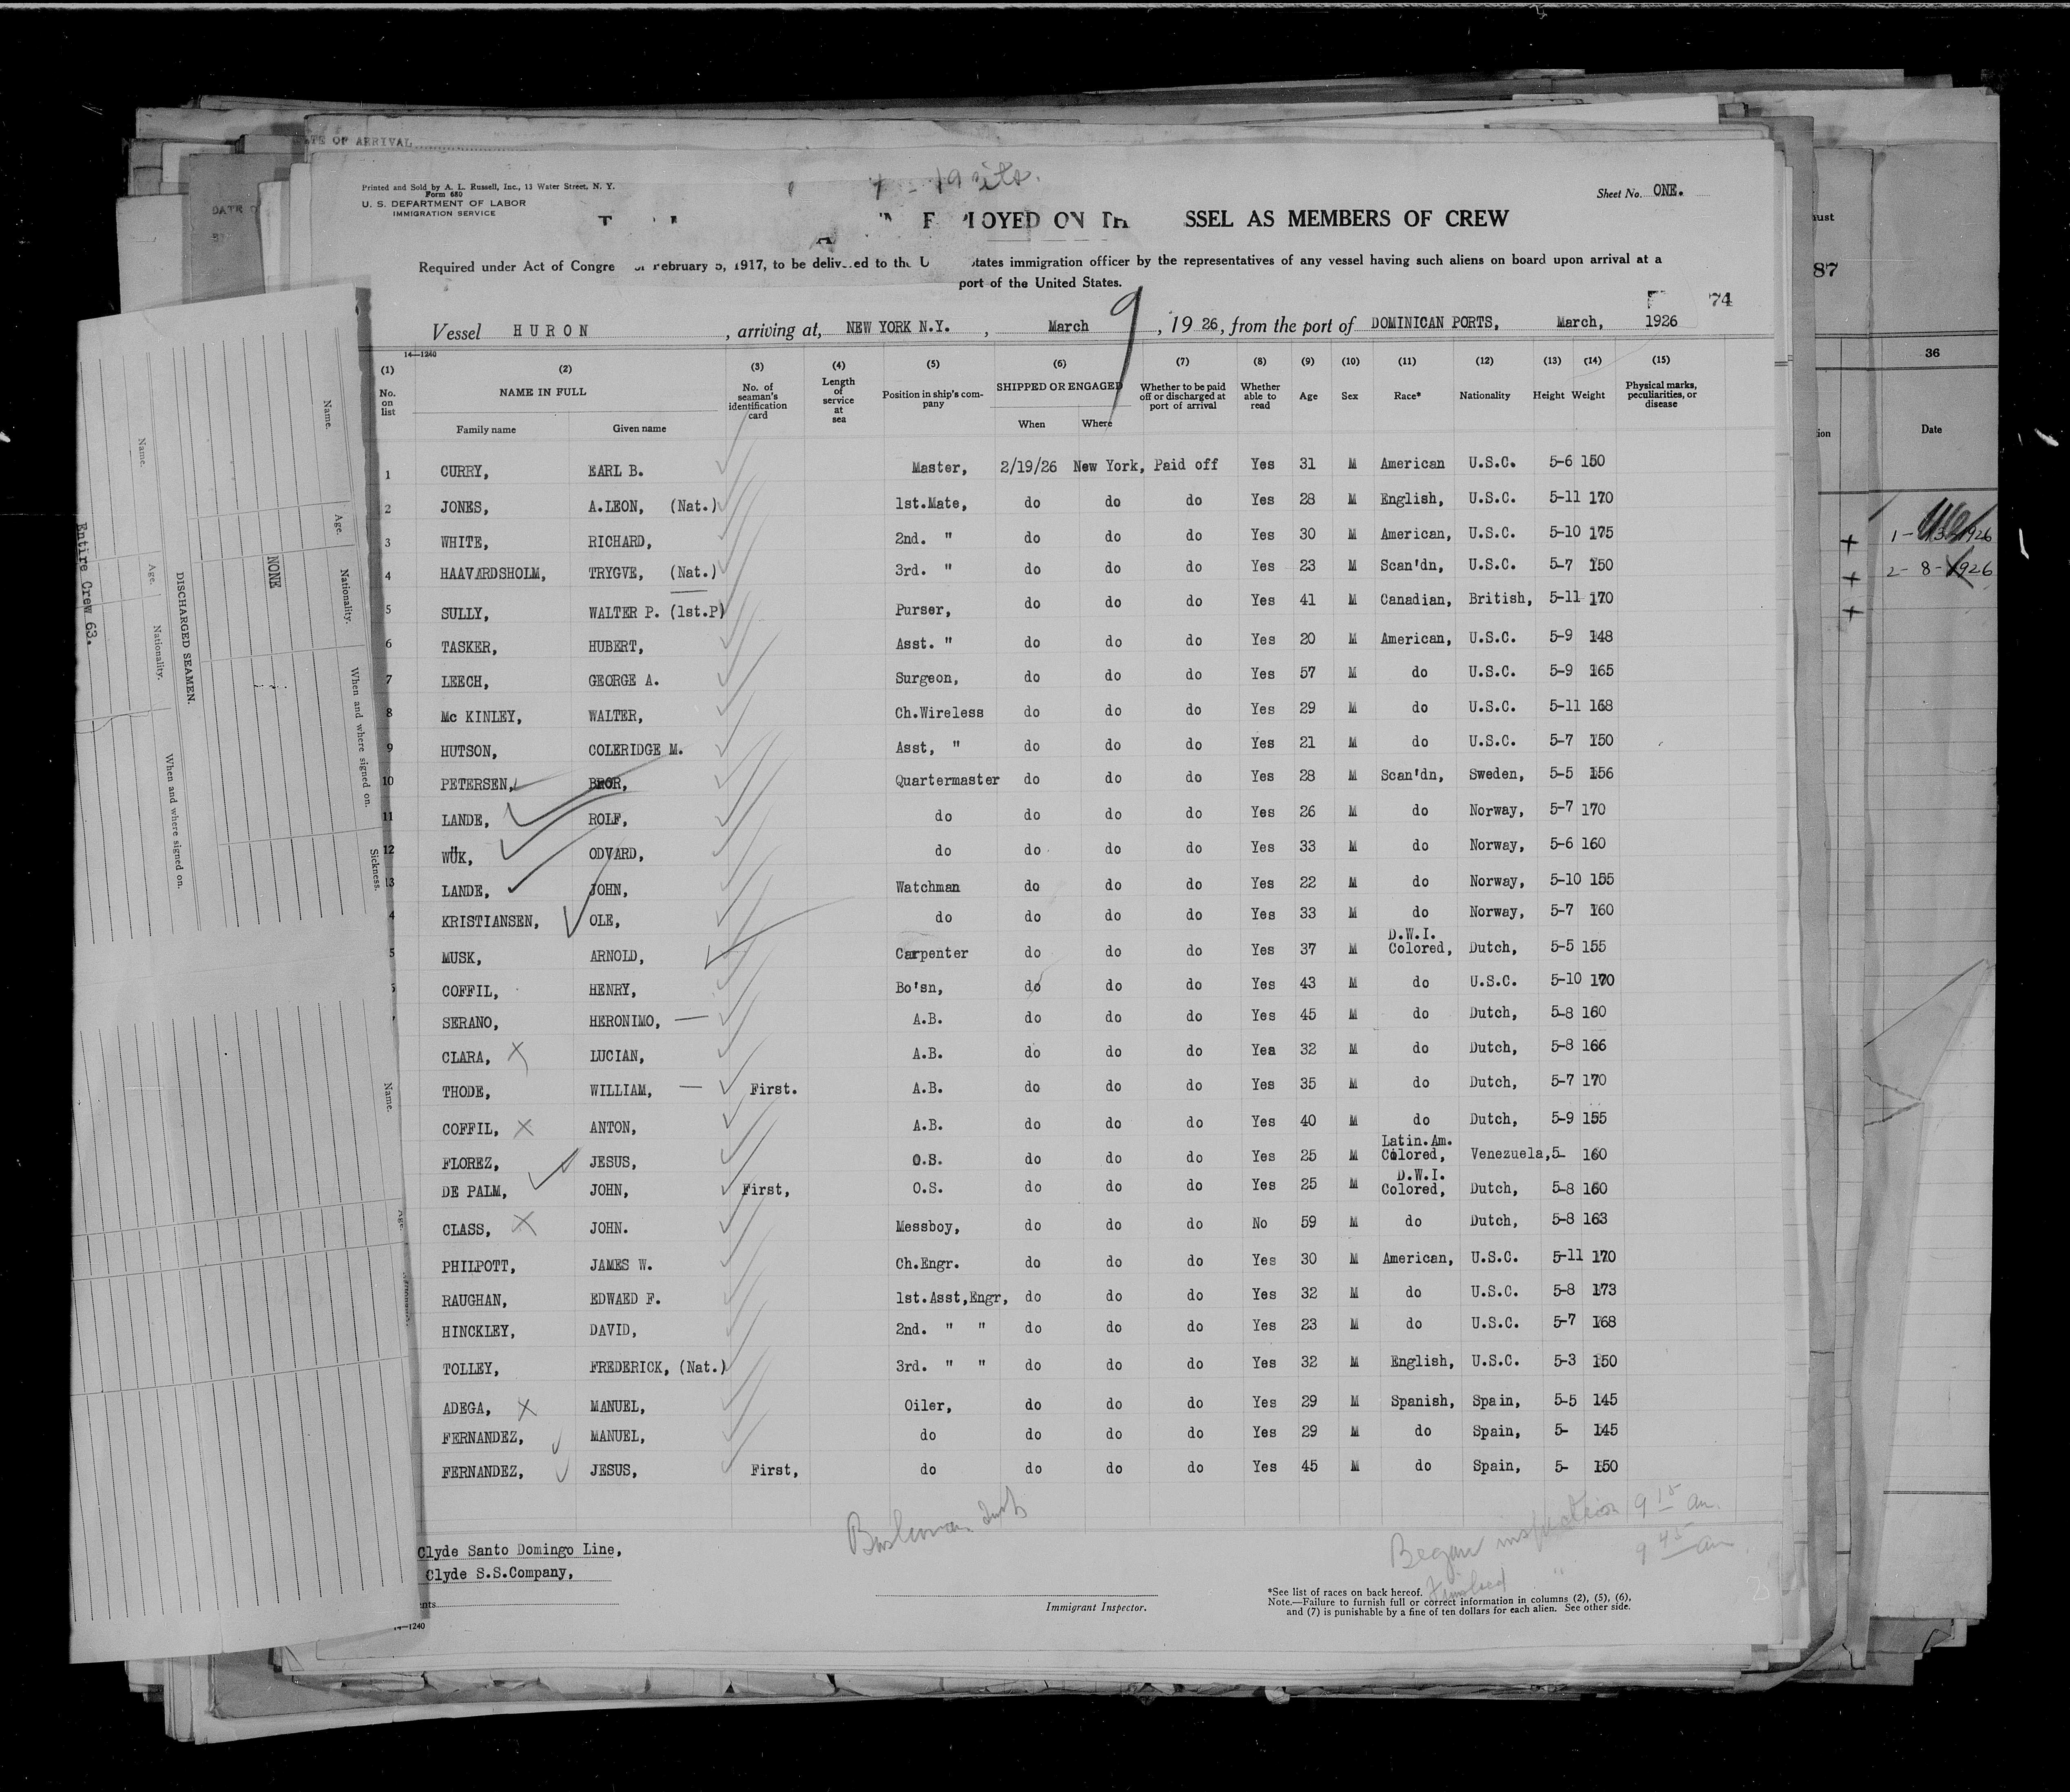 TE OF ARRIVAL
Printed and Sold by A. L. Russell, Inc., 13 Water Street, N. Y.
Form 680
U. S. DEPARTMENT OF LABOR
IMMIGRATION SERVICE
Sheet No. ONE.
SSEL AS MEMBERS OF CREW
Required under Act of Congre February 5, 1917, to be delivered to the U tates immigration officer by the representatives of any vessel having such aliens on board upon arrival at a
port of the United States.
74
Vessel HURON, arriving at, NEW YORK N.Y., March 9, 1926, from the port of DOMINICAN PORTS, March, 1926
14—1240
(1) (2) (3) (4) (5) (6) (7) (8) (9) (10) (11) (12) (13) (14) (15)
No. on list NAME IN FULL Family name Given name No. of seaman's identification card Length of service at sea Position in ship's company SHIPPED OR ENGAGED When Where Whether to be paid off or discharged at port of arrival Whether able to read Age Sex Race* Nationality Height Weight Physical marks, peculiarities, or disease
1 CURRY, EARL B. Master, 2/19/26 New York, Paid off Yes 31 M American U.S.C. 5-6 150
2 JONES, A.LEON, (Nat.) 1st.Mate, do do do Yes 28 M English, U.S.C. 5-11 170
3 WHITE, RICHARD, 2nd. " do do do Yes 30 M American, U.S.C. 5-10 175
4 HAAVARDSHOLM, TRYGVE, (Nat.) 3rd. " do do do Yes 23 M Scan'dn, U.S.C. 5-7 150
5 SULLY, WALTER P. (1st.P) Purser, do do do Yes 41 M Canadian, British, 5-11 170
6 TASKER, HUBERT, Asst. " do do do Yes 20 M American, U.S.C. 5-9 148
7 LEECH, GEORGE A. Surgeon, do do do Yes 57 M do U.S.C. 5-9 165
8 Mc KINLEY, WALTER, Ch.Wireless do do do Yes 29 M do U.S.C. 5-11 168
9 HUTSON, COLERIDGE M. Asst, " do do do Yes 21 M do U.S.C. 5-7 150
10 PETERSEN, BROR, Quartermaster do do do Yes 28 M Scan'dn, Sweden, 5-5 156
11 LANDE, ROLF, do do do do Yes 26 M do Norway, 5-7 170
12 WÜK, ODVARD, do do do do Yes 33 M do Norway, 5-6 160
13 LANDE, JOHN, Watchman do do do Yes 22 M do Norway, 5-10 155
4 KRISTIANSEN, OLE, do do do do Yes 33 M do Norway, 5-7 160
5 MUSK, ARNOLD, Carpenter do do do Yes 37 M D.W.I. Colored, Dutch, 5-5 155
COFFIL, HENRY, Bo'sn, do do do Yes 43 M do U.S.C. 5-10 170
SERANO, HERONIMO, A.B. do do do Yes 45 M do Dutch, 5-8 160
CLARA, LUCIAN, A.B. do do do Yea 32 M do Dutch, 5-8 166
THODE, WILLIAM, First. A.B. do do do Yes 35 M do Dutch, 5-7 170
COFFIL, ANTON, A.B. do do do Yes 40 M do Dutch, 5-9 155
FLOREZ, JESUS, O.S. do do do Yes 25 M Latin.Am. Colored, Venezuela, 5- 160
DE PALM, JOHN, First, O.S. do do do Yes 25 M D.W.I. Colored, Dutch, 5-8 160
CLASS, JOHN. Messboy, do do do No 59 M do Dutch, 5-8 163
PHILPOTT, JAMES W. Ch.Engr. do do do Yes 30 M American, U.S.C. 5-11 170
RAUGHAN, EDWAED F. 1st.Asst,Engr, do do do Yes 32 M do U.S.C. 5-8 173
HINCKLEY, DAVID, 2nd. " " do do do Yes 23 M do U.S.C. 5-7 168
TOLLEY, FREDERICK, (Nat.) 3rd. " " do do do Yes 32 M English, U.S.C. 5-3 150
ADEGA, MANUEL, Oiler, do do do Yes 29 M Spanish, Spain, 5-5 145
FERNANDEZ, MANUEL, do do do do Yes 29 M do Spain, 5- 145
FERNANDEZ, JESUS, First, do do do do Yes 45 M do Spain, 5- 150
Began inspection 9 15 am.
Finished " 9 45 am
Clyde Santo Domingo Line,
Clyde S.S.Company,
nts
Immigrant Inspector.
*See list of races on back hereof.
Note.—Failure to furnish full or correct information in columns (2), (5), (6),
and (7) is punishable by a fine of ten dollars for each alien. See other side.
14—1240
Entire Crew 63.
DISCHARGED SEAMEN.
Name. Age. Nationality. When and where signed on.
NONE
Name. Age. Nationality. When and where signed on. Sickness.
Name.
Age.
87
36
Date
2- 8-1926